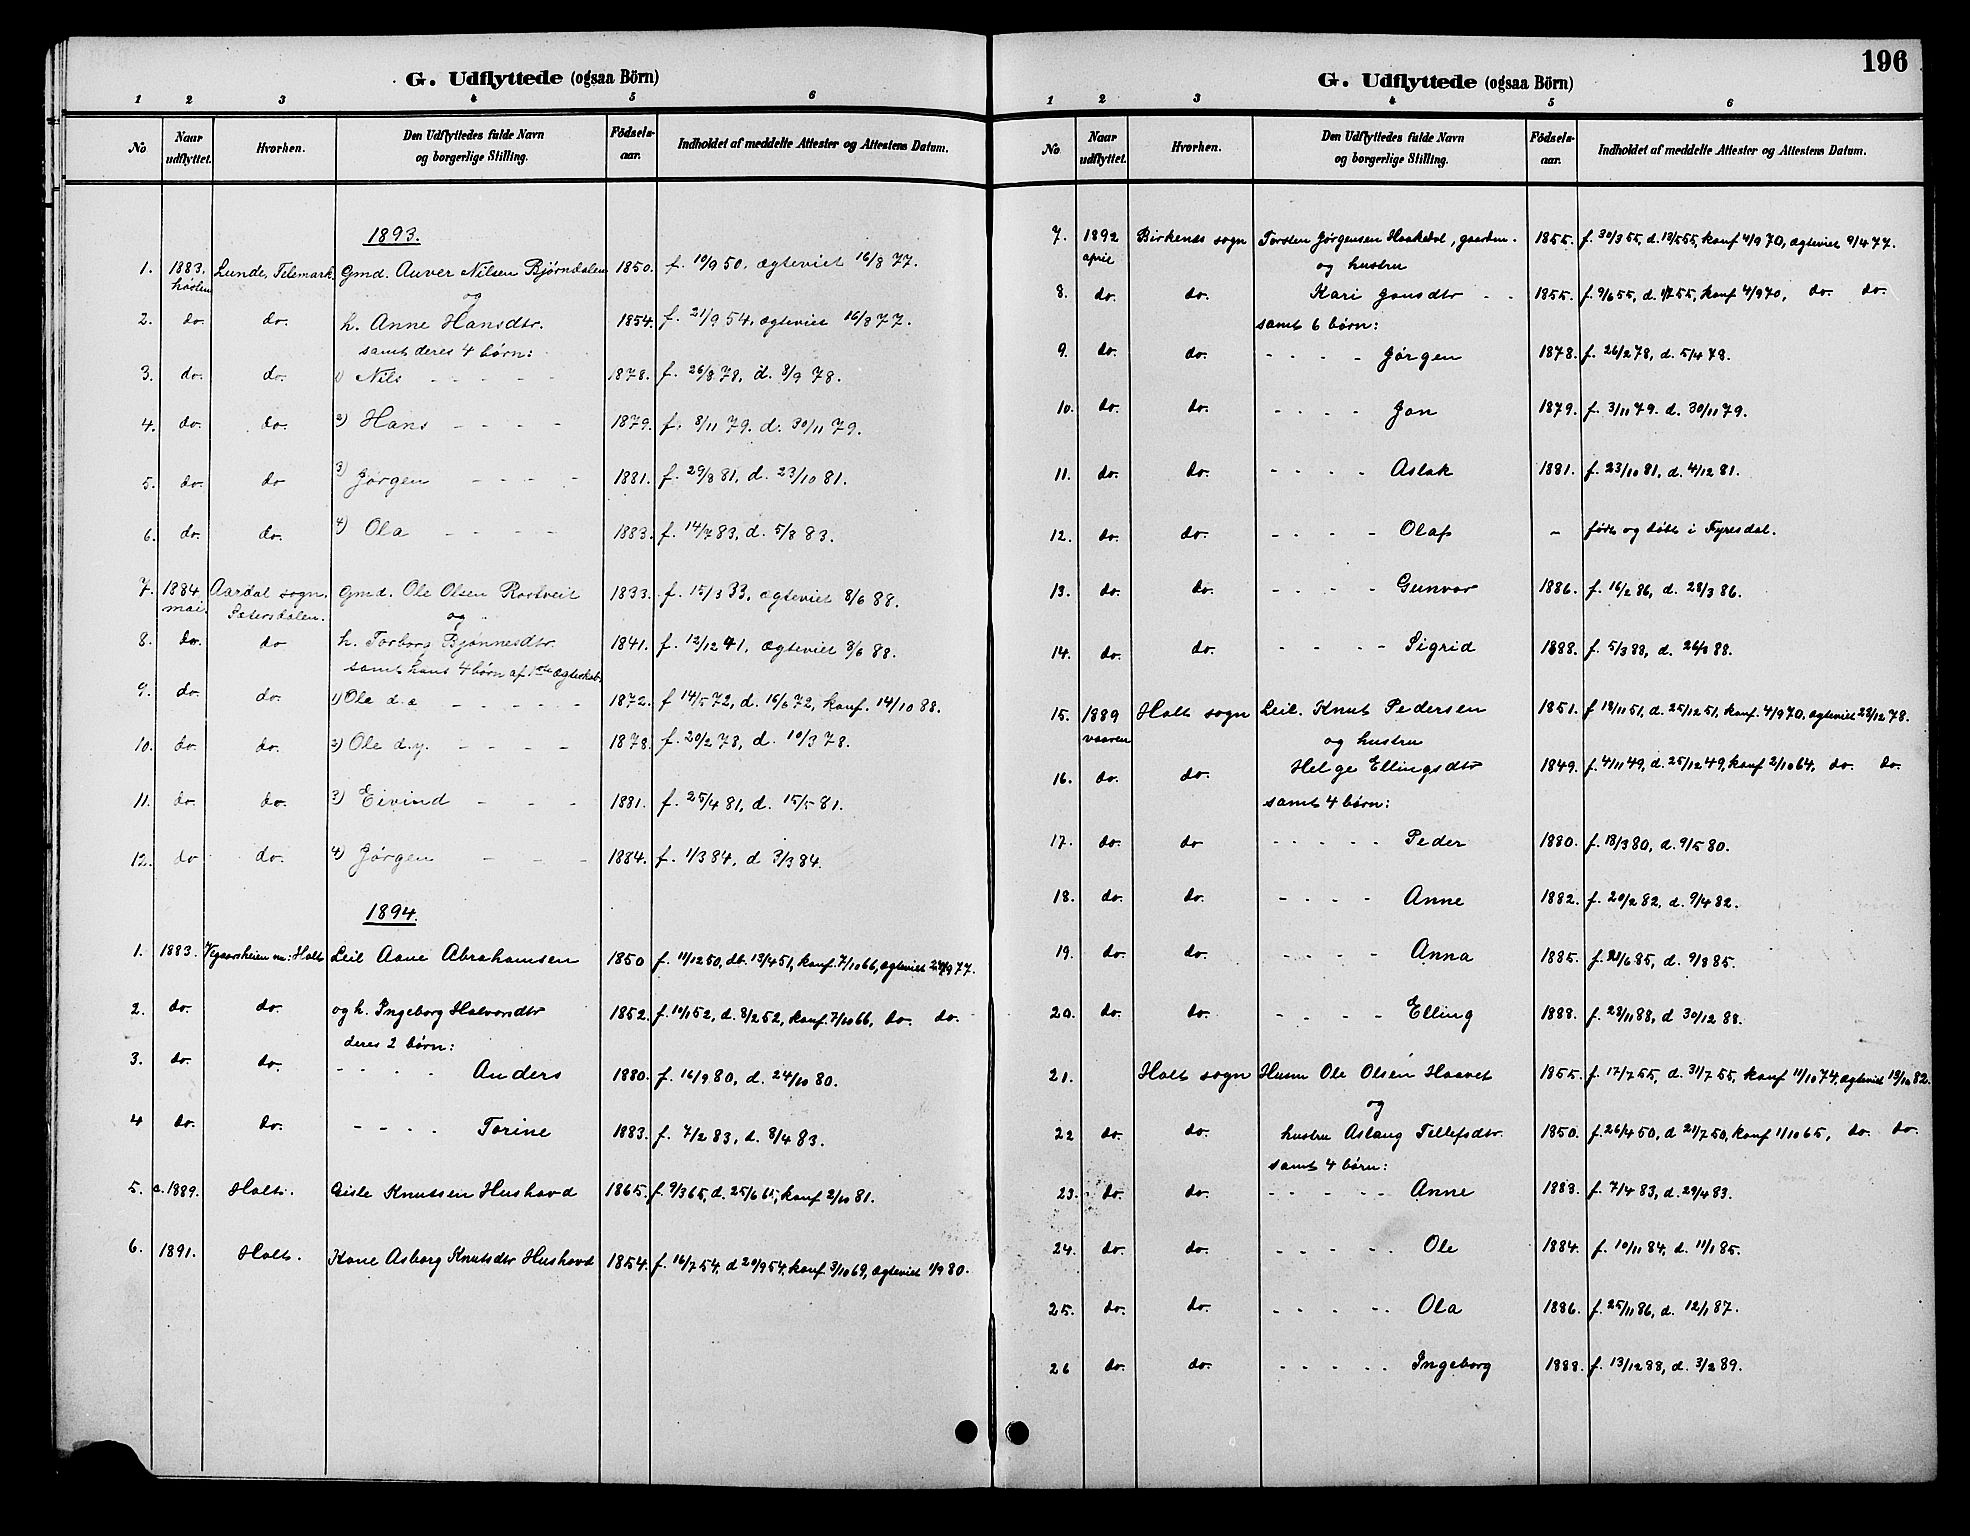 G. Udflyttede (ogsaa Börn)
1 2 3 4 5 6
No Naar udflyttet. Hvorhen. Den Udflyttedes fulde Navn og borgerlige Stilling. Födsels-aar. Indholdet af meddelte Attester og Attestens Datum.
1893.
1. 1883. høsten Lunde, Telemark Gmd. Auver Nilsen Bjørndalen 1850. f. 10/9 50, ægteviet 16/8 77.
og
2. do. do. h. Anne Hansdtr. 1854. f. 21/9 54, ægteviet 16/8 77.
samt deres 4 børn:
3. do. do. 1) Nils - - - - - 1878. f. 26/8 78, d. 8/9 78.
4. do. do. 2) Hans - - - - 1879. f. 8/11 79. d. 30/11 79.
5. do. do 3) Jørgen - - - - 1881. f. 29/8 81, d. 23/10 81.
6. do. do. 4) Ola - - - - 1883. f. 14/7 83, d. 5/8 83.
7. 1884. mai Aardal sogn, Sætersdalen. Gmd. Ole Olsen Rostveit 1833. f. 15/3 33, ægteviet 8/6 88.
og
8. do. do h. Torborg Bjønnesdtr. 1841. f. 12/12 41, ægteviet 8/6 88.
samt hans 4 børn af 1ste ægteskab.
9. do do. 1) Ole d.e - - - - - 1872. f 14/5 72, d. 16/6 72, konf. 14/10 88.
10. do. do. 2) Ole d.y. - - - - 1878. f. 20/2 78, d. 10/3 78.
11. do. do. 3) Eivind - - - 1881. f. 25/4 81, d. 15/5 81.
12. do do. 4) Jørgen - - - 1884. f. 1/3 84, d 3/3 84.
1894.
1. 1883. Vegaarsheien : Holt Leil Aane Abrahamsen 1850 f. 11/12 50, db. 13/4 51, konf. 7/10 66, ægteviet 77.
2. do. do. og h. Ingeborg Halvorsdtr 1852. f. 10/1 52, d. 8/2 52, konf. 7/10 66, do. do.
deres 2 børn:
3. do. do. - - - - Anders 1880. f. 16/9 80, d. 24/10 80.
4 do. do. - - - - Torine 1883. f. 7/2 83, d. 8/4 83.
5. c. 1889. Holt. Gisle Knutsen Hushovd 1865. f. 9/3 65, d. 25/6 65, konf 2/10 81.
6. 1891. Holt. Kone Asborg Knutsdtr Hushovd 1854. f. 16/7 54, d 20/9 54, konf 3/10 69, ægteviet 1/9 80.
196
G. Udflyttede (ogsaa Börn)
1 2 3 4 5 6
No Naar udflyttet. Hvorhen. Den Udflyttedes fulde Navn og borgerlige Stilling. Födsels-aar. Indholdet af meddelte Attester og Attestens Datum.
7. 1892 april Birkenes sogn Torsten Jørgensen Haakedal, gaardm. 1855. f. 30/3 55, d. 13/5 55, konf 4/9 70, ægteviet 9/4 77.
og hustru
8. do. do. Kari Jonsdtr - - 1855. f. 9/6 55, d. 1/7 55, konf 4/9 70, do. do.
samt 6 børn:
9. do. do. - - - - Jørgen 1878. f. 26/2 78, d. 5/4 78.
10. do. do. - - - - Jon 1879. f. 3/11 79. d. 30/11 79.
11. do. do. - - - - Aslak 1881. f. 23/10 81, d. 4/12 81.
12. do. do. - - - - Olaf - født og døbt i Fyresdal.
13. do. do. - - - - Gunvor 1886. f. 16/2 86, d. 28/3 86.
14. do. do. - - - - Sigrid 1888. f. 5/3 88, d. 26/3 88.
15. 1889 vaaren Holt sogn Leil. Knut Pedersen 1851. f 13/11 51, d. 25/12 51, konf. 4/9 70. ægteviet 28/12 78.
og hustru
16. do. do. Helge Ellingsdtr 1849. f. 4/11 49, d. 25/12 49, konf 2/10 64, do. do.
samt 4 børn:
17. do. do - - - - - Peder 1880. f. 18/3 80, d. 9/5 80.
18. do. do. - - - - Anne 1882. f. 20/2 82, d. 9/4 82.
19. do. do. - - - - Anna 1885. f. 21/6 85, d. 9/8 85.
20. do. do. - - - - Elling 1888. f. 28/11 88, d 30/12 88.
21. Holt sogn Husm Ole Olsen Haavet 1855. f. 17/7 55, d. 31/7 55, konf 11/10 74, ægteviet 13/10 82.
og
22 do. do. hustru Aslaug Tellefsdtr. 1850. f. 26/4 50, d 21/7 50, konf 1/10 65, do. do.
samt 4 børn:
23. do. do. - - - - - Anne 1883. f. 7/4 83, d. 29/4 83.
24. do. do. - - - - - Ole 1884. f. 10/11 84, d. 11/1 85.
25. do. do. - - - - - Ola 1886. f. 25/11 86, d. 12/1 87.
26 do. do. - - - - - Ingeborg 1888. f. 13/12 88, d. 3/2 89.